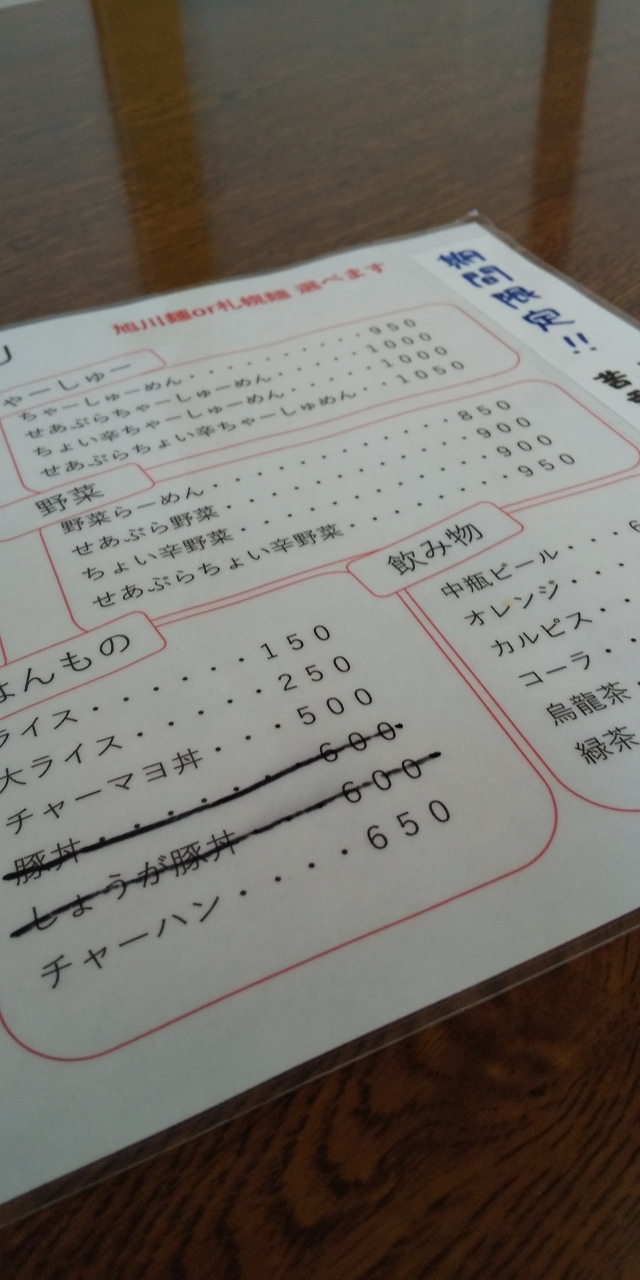 旭川麺or札幌麺 選べます
ゃーしゅー
ちゃーしゅーめん・・・・・・・・・・950
せあぶらちゃーしゅーめん・・・・・1000
ちょい辛ちゃーしゅーめん・・・・・1000
せあぶらちょい辛ちゃーしゅめん・・1050
野菜
野菜らーめん・・・・・・・・・・・850
せあぶら野菜・・・・・・・・・・・900
ちょい辛野菜・・・・・・・・・・・900
せあぶらちょい辛野菜・・・・・・・950
はんもの
ライス・・・・・・・150
大ライス・・・・・・250
チャーマヨ丼・・・・500
豚丼・・・・・・・・600
しょうが豚丼・・・・600
チャーハン・・・・・650
飲み物
中瓶ビール・・・
オレンジ・・・
カルピス・・
コーラ・・
烏龍茶・
緑茶
期間限定!!